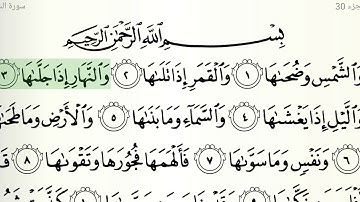 سورة ال
جزء 30
بِسْمِ اللَّهِ الرَّحْمَٰنِ الرَّحِيمِ
وَالشَّمْسِ وَضُحَىٰهَا ١ وَالْقَمَرِ إِذَا تَلَىٰهَا ٢ وَالنَّهَارِ إِذَا جَلَّىٰهَا ٣
وَالَّيْلِ إِذَا يَغْشَىٰهَا ٤ وَالسَّمَآءِ وَمَا بَنَىٰهَا ٥ وَالْأَرْضِ وَمَا طَحَىٰهَا
٦ وَنَفْسٍ وَمَا سَوَّىٰهَا ٧ فَأَلْهَمَهَا فُجُورَهَا وَتَقْوَىٰهَا ٨ قَ